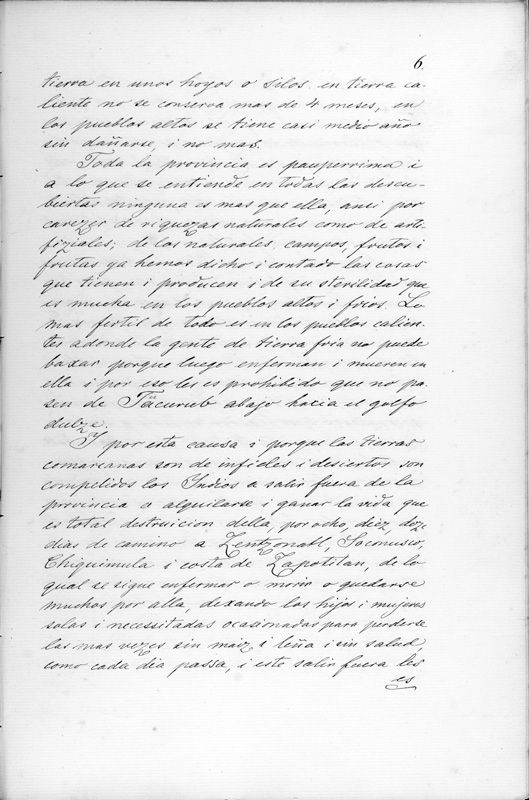 6.
tierra en unos hoyos o silos en tierra ca-
liente no se conserva mas de 4 meses, en
los pueblos altos se tiene casi medio año
sin dañarse, i no mas.
Toda la provincia es pauperrima i
a lo que se entiende en todas las descu-
biertas ninguna es mas que ella, ansi por
carezer de riquezas naturales como de arti-
fiziales; de las naturales, campos, frutos i
frutas ya hemos dicho i contado las cosas
que tienen i producen i de su sterilidad que
es mucha en los pueblos altos i frios. Lo
mas fertil de todo es en los pueblos calien-
tes adonde la gente de tierra fria no puede
baxar porque luego enferman i mueren en
ella i por eso les es prohibido que no pa-
sen de Tucurub abajo hacia el golfo
dulze.
Y por esta causa i porque las tierras
comarcanas son de infieles i desiertos son
compelidos los Indios a salir fuera de la
provincia o alquilarse i ganar la vida que
es total destruicion della, por ocho, diez, doze
dias de camino a Zentzonatl, Soconusco,
Chiquimula i costa de Zapotitan, de lo
qual se sigue enfermar o morir o quedarse
muchos por alla, dexando los hijos i mujeres
solas i necessitadas ocasionadas para perderse
las mas vezes sin maiz i leña i sin salud,
como cada dia passa, i este salir fuera les
es